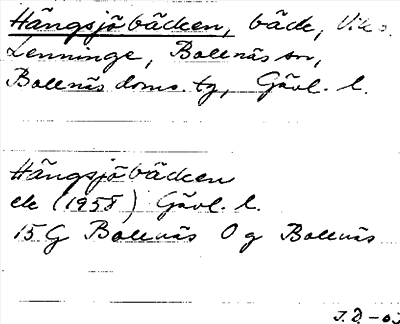 Hängsjöbäcken, bäck, Vik o.
Lenninge, Bollnäs sn,
Bollnäs doms. tg, Gävl. l.
Hängsjöbäcken
ek (1958) Gävl. l.
15G Bollnäs O g Bollnäs